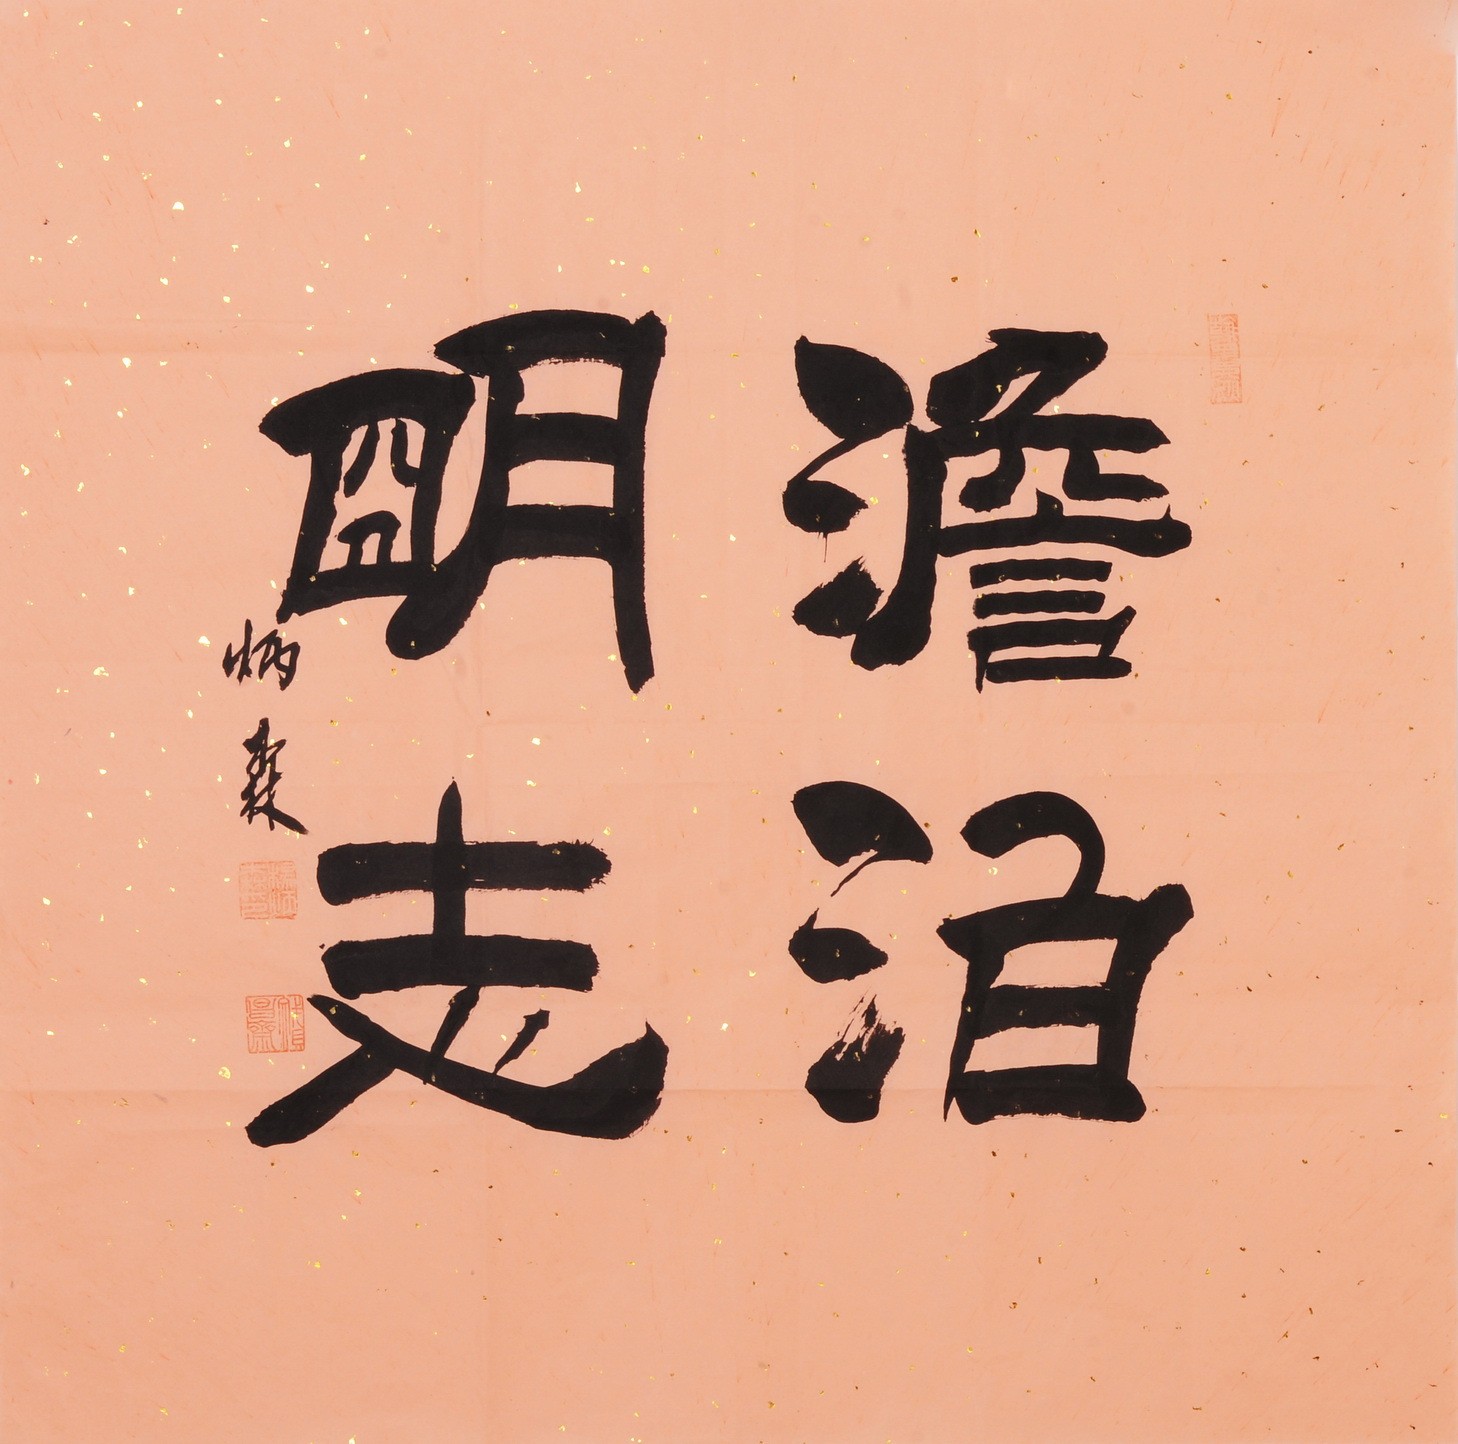 澹泊
朙志
炳森